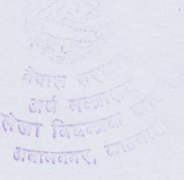 नेपाल सरकार
अर्थ मन्त्रालय
लेखा नियन्त्रक
अनामनगर, काठमाडौं